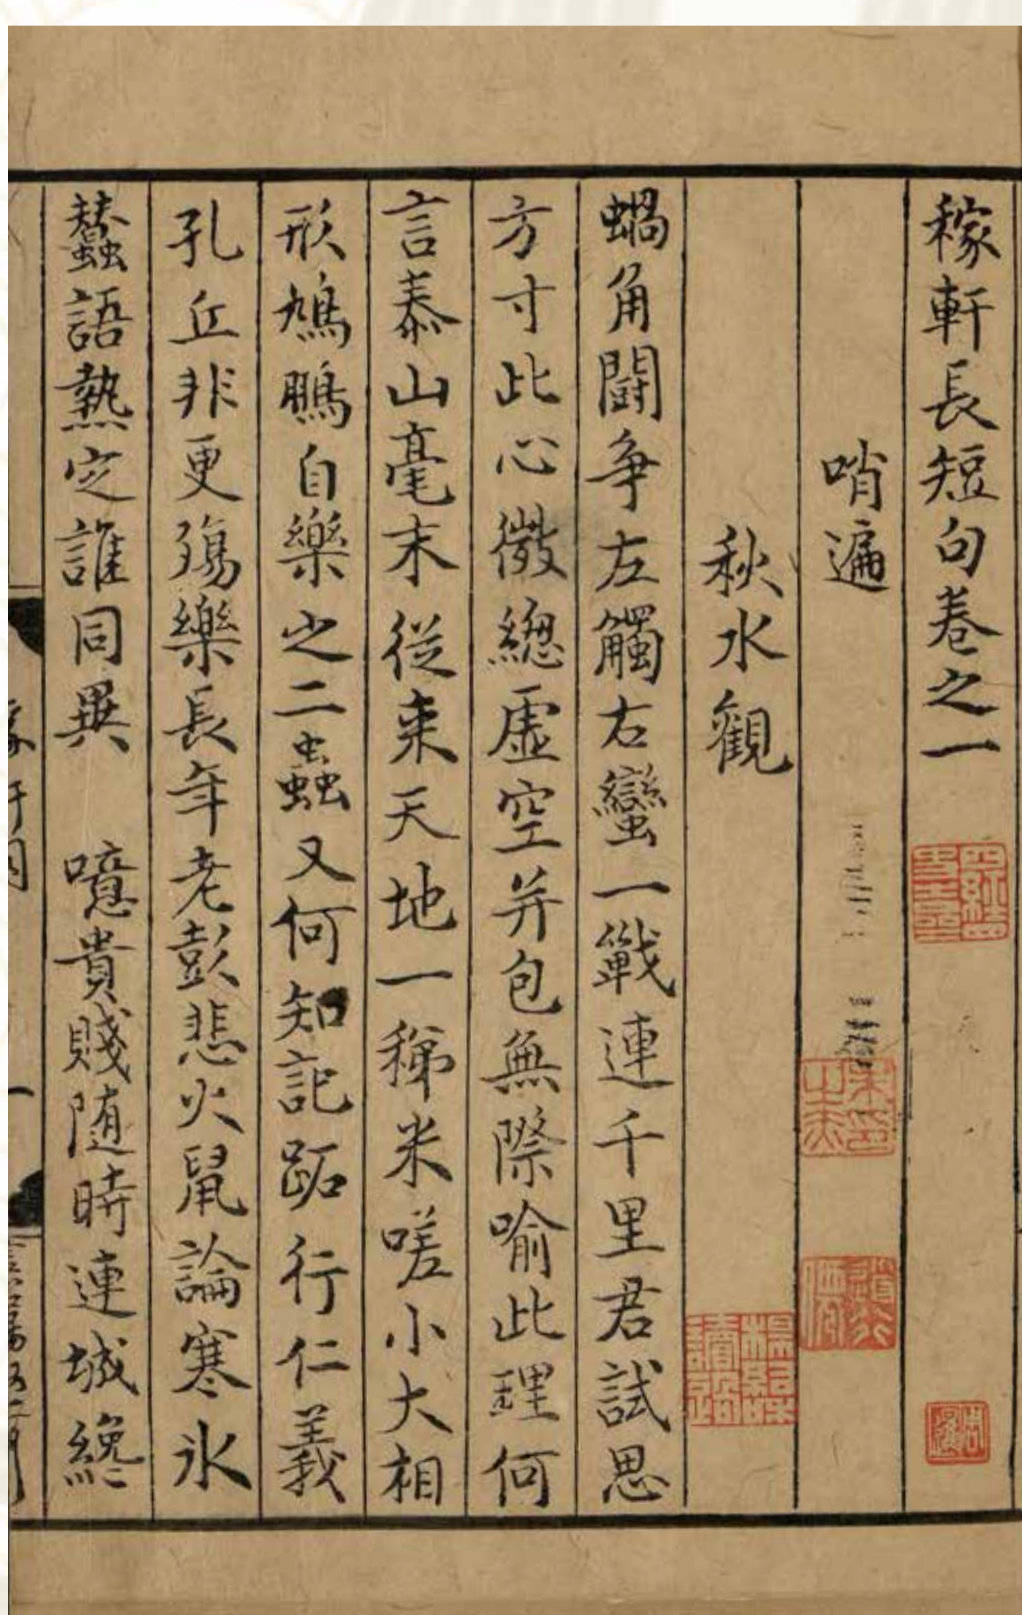 稼軒長短句卷之一
哨遍
秋水觀
蝸角鬭争左觸右蠻一戰連千里君試思
方寸此心微緫虛空并包無際喻此理何
言泰山毫末從来天地一稊米嗟小大相
形鳩鵬自樂之二蟲又何知記跖行仁義
孔丘非更殤樂長年老彭悲火䑕論寒氷
蠶語熱定誰同異　噫貴賤随時連城纔